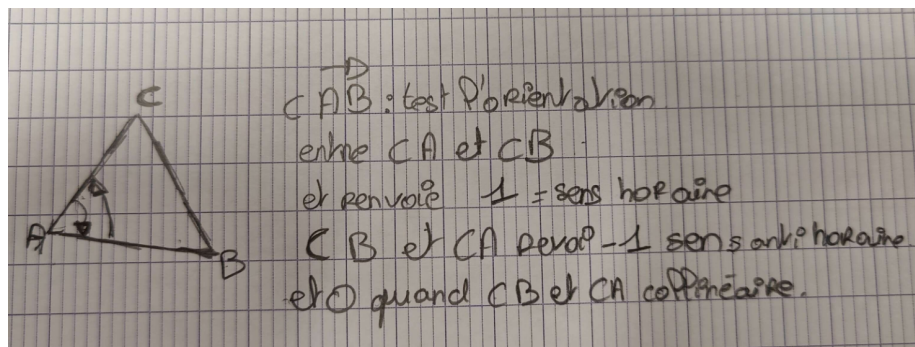 C
A
B
CAB : test l'orientation
entre CA et CB
et renvoie 1 = sens horaire
CB et CA -1 sens antihoraire
et 0 quand CB et CA collinéaire.